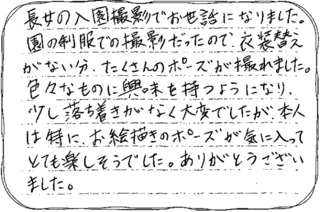 長女の入園撮影でお世話になりました。
園の制服での撮影だったので、衣装替え
がない分、たくさんのポーズが撮れました。
色々なものに興味を持つようになり、
少し落ち着きがなく大変でしたが、本人
は特に、お絵描きのポーズが気に入って
とても楽しそうでした。ありがとうござい
ました。